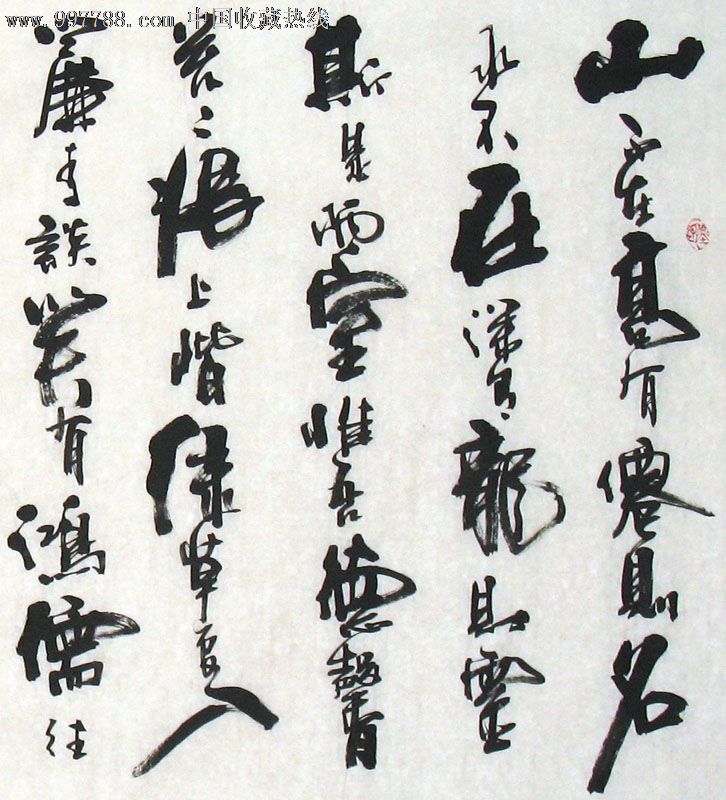 www.997788.com 中国收藏热线
山不在高有僊則名
水不在深有龍則靈
斯是陋室惟吾德馨
苔痕上階緑草色入
簾青談笑有鴻儒往